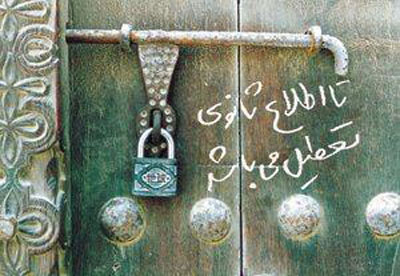 تا اطلاع ثانوی
تعطیل می باشد